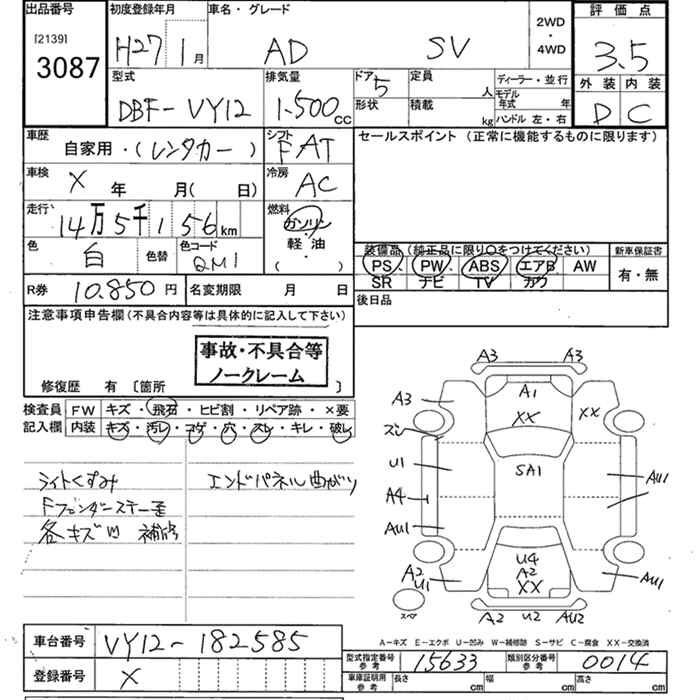 出品番号 初度登録年月 車名・グレード 2WD・4WD 評価点
[2139]
3087 H27 1月 AD SV 3.5
型式 排気量 ドア 定員 ディーラー・並行 外装 内装
DBF-VY12 1.500cc 5 人 モデル年式 年 D C
形状 積載 kg ハンドル 左・右
車歴 自家用・(レンタカー) シフト FAT セールスポイント (正常に機能するものに限ります)
車検 X 年 月(日) 冷房 AC
走行 14万5千156km 燃料 ガソリン・軽油 ( )
色 白 色替 色コード QM1
装備品(純正品に限り○をつけてください) 新車保証書
PS PW ABS エアB AW 有・無
SR ナビ TV カワ
R券 10.850円 名変期限 月 日 後日品
注意事項申告欄(不具合内容等は具体的に記入して下さい)
事故・不具合等
ノークレーム
修復歴 有〔箇所 〕
検査員 FW キズ・飛石・ヒビ割・リペア跡・×要
記入欄 内装 キズ・汚レ・コゲ・穴・スレ・キレ・破レ
ライトくすみ エンドパネル曲がり
Fフェンダーステー歪
各キズ凹 補修
A3 A3
A3 A1 XX XX
ズレ
U1 SA1 AU1
A4
AU1
U4
A2 A2 XX AU1
U1
スペア
A2 U2 AU2
A-キズ E-エクボ U-凹み W-補修跡 S-サビ C-腐食 XX-交換済
車台番号 VY12-182585
登録番号 X
型式指定番号 参考 15633 類別区分番号 参考 0014
車庫証明用 参考 長さ cm 幅 cm 高さ cm